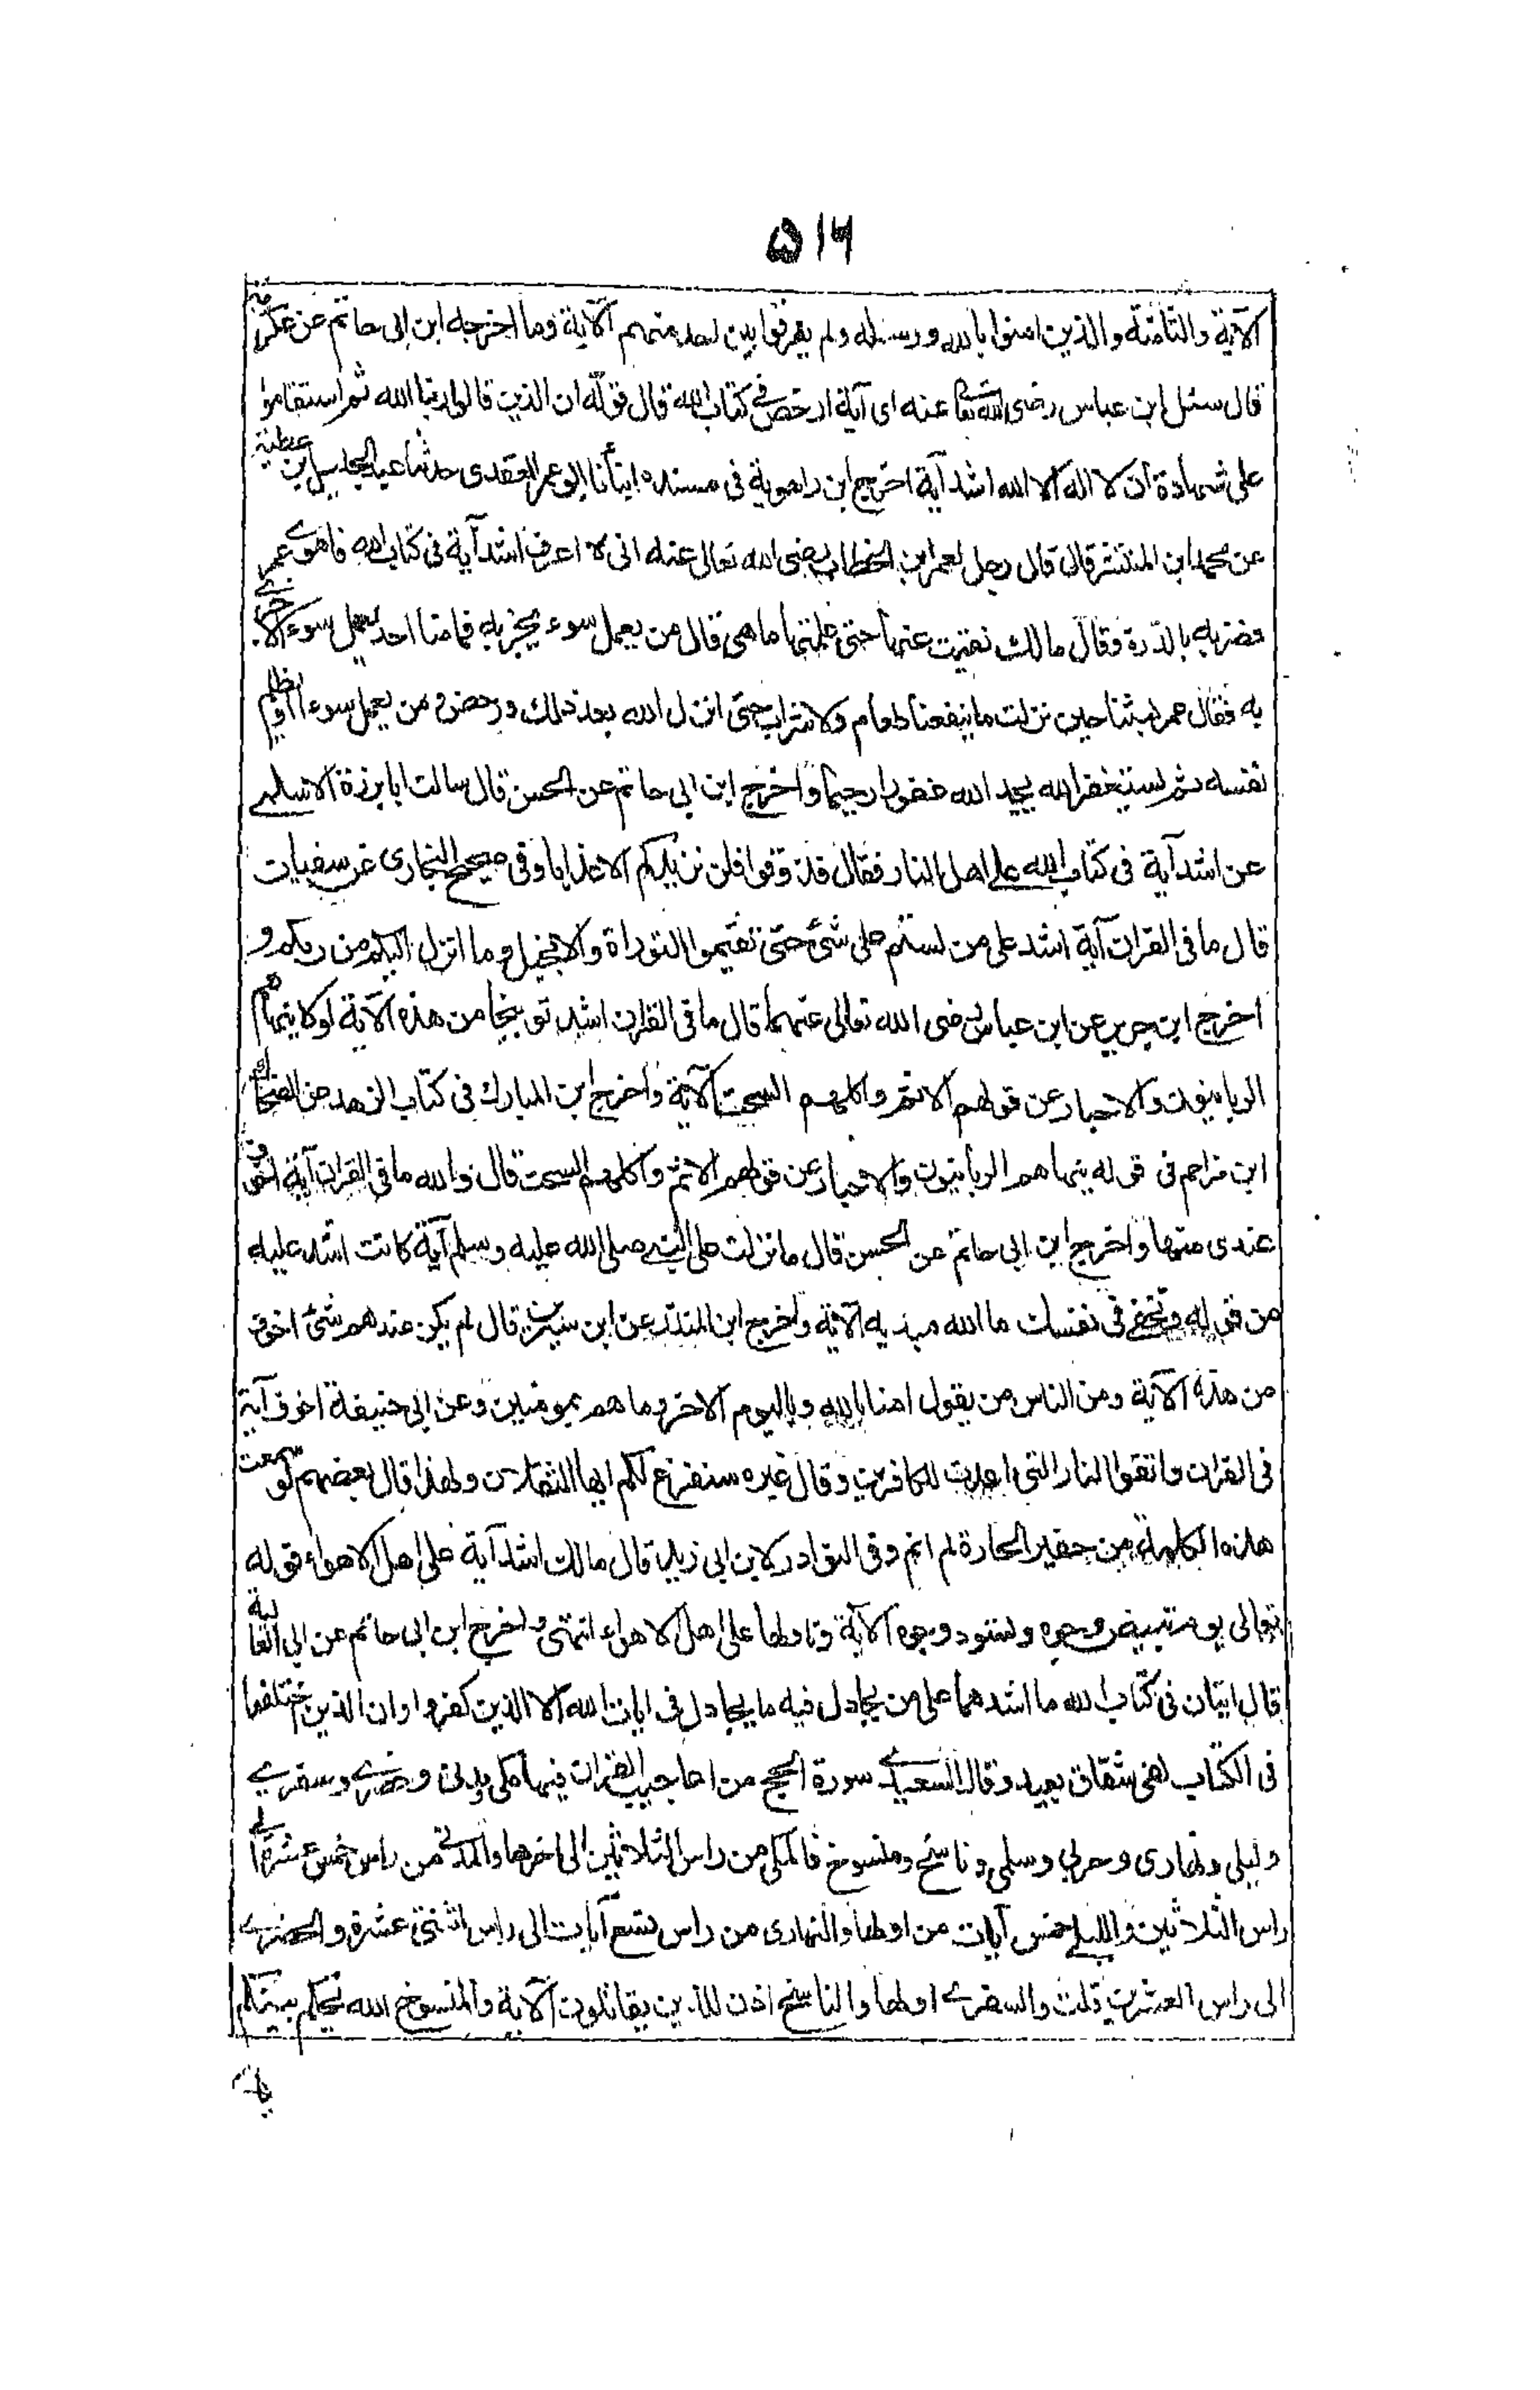 ۵۱۶
الآية والثامنة والذين امنوا بالله ورسله ولم يفرقوا بين احد منهم الآية وما اخرجه ابن ابى حاتم عن عكرمة
قال سئل ابن عباس رضى الله تعالى عنه اى آية ارخص فى كتاب الله قال قوله ان الذين قالوا ربنا الله ثم استقاموا
على شهادة ان لا اله الا الله اشد آية اخرج ابن راهوية فى مسنده انبأنا ابو عمر العقدى حدثنا عبد الجليل ابن عطية
عن محمد ابن المنتشر قال قال رجل لعمر ابن الخطاب رضى الله تعالى عنه انى لا اعرف اشد آية فى كتاب الله فاهوى عمر
فضربه بالدرة وقال مالك نقبت عنها حتى علمتها ما هى قال من يعمل سوء يجز به فما منا احد يعمل سوء الا جزى
به فقال عمر لبثنا حين نزلت ما ينفعنا طعام ولا شراب حتى انزل الله بعد ذلك ورخص و من يعمل سوءا او يظلم
نفسه ثم يستغفر الله يجد الله غفورا رحيما واخرج ابن ابى حاتم عن الحسن قال سالت ابا برزة الاسلمى
عن اشد آية فى كتاب الله على اهل النار فقال فذوقوا فلن نزيدكم الا عذابا وفى صحيح البخارى عن سفيان
قال ما فى القران آية اشد على من لستم على شئ حتى تقيموا التوراة والانجيل وما انزل اليكم من ربكم و
اخرج ابن جرير عن ابن عباس رضى الله تعالى عنهما قال ما فى القران اشد توبيخا من هذه الآية لولا ينهاهم
الربانيون والاحبار عن قولهم الاثم واكلهم السحت الآية واخرج ابن المبارك فى كتاب الزهد عن الضحاك
ابن مزاحم فى قوله ينهاهم الربانيون والاحبار عن قولهم الاثم واكلهم السحت قال والله ما فى القران آية اخوف
عندى منها واخرج ابن ابى حاتم عن الحسن قال ما نزلت على النبى صلى الله عليه وسلم آية كانت اشد عليه
من قوله وتخفى فى نفسك ما الله مبديه الآية واخرج ابن المنذر عن ابن سيرين قال لم يكن عندهم شئ اخوف
من هذه الآية ومن الناس من يقول امنا بالله وباليوم الاخر وما هم بمومنين وعن ابى حنيفة اخوف آية
فى القران واتقوا النار التى اعدت للكافرين وقال غيره سنفرغ لكم ايها الثقلان ولهذا قال بعضهم لو سمعت
هذه الكلمة من حقير الحارة لم انم وفى النوادر لابن ابى زيد قال مالك اشد آية على اهل الاهواء قوله
تعالى يوم تبيض وجوه وتسود وجوه الآية وتاولها على اهل الاهواء انتهى واخرج ابن ابى حاتم عن ابى العالية
قال ايتان فى كتاب الله ما اشدهما على من يجادل فيه ما يجادل فى ايات الله الا الذين كفروا وان الذين اختلفوا
فى الكتاب لفى شقاق بعيد وقال السعيدى سورة الحج من اعاجيب القران فيها مكى ومدنى وحضرى وسفرى
وليلى ونهارى وحربى وسلمى وناسخ ومنسوخ فالمكى من راس الثلاثين الى اخرها والمدنى من راس خمس عشرة الى
راس الثلاثين والليلى خمس آيات من اولها والنهارى من راس تسع آيات الى راس اثنتى عشرة والحضرى
الى راس العشرين قلت والسفرى اولها والناسخ اذن للذين يقاتلون الآية والمنسوخ الله يحكم بينكم